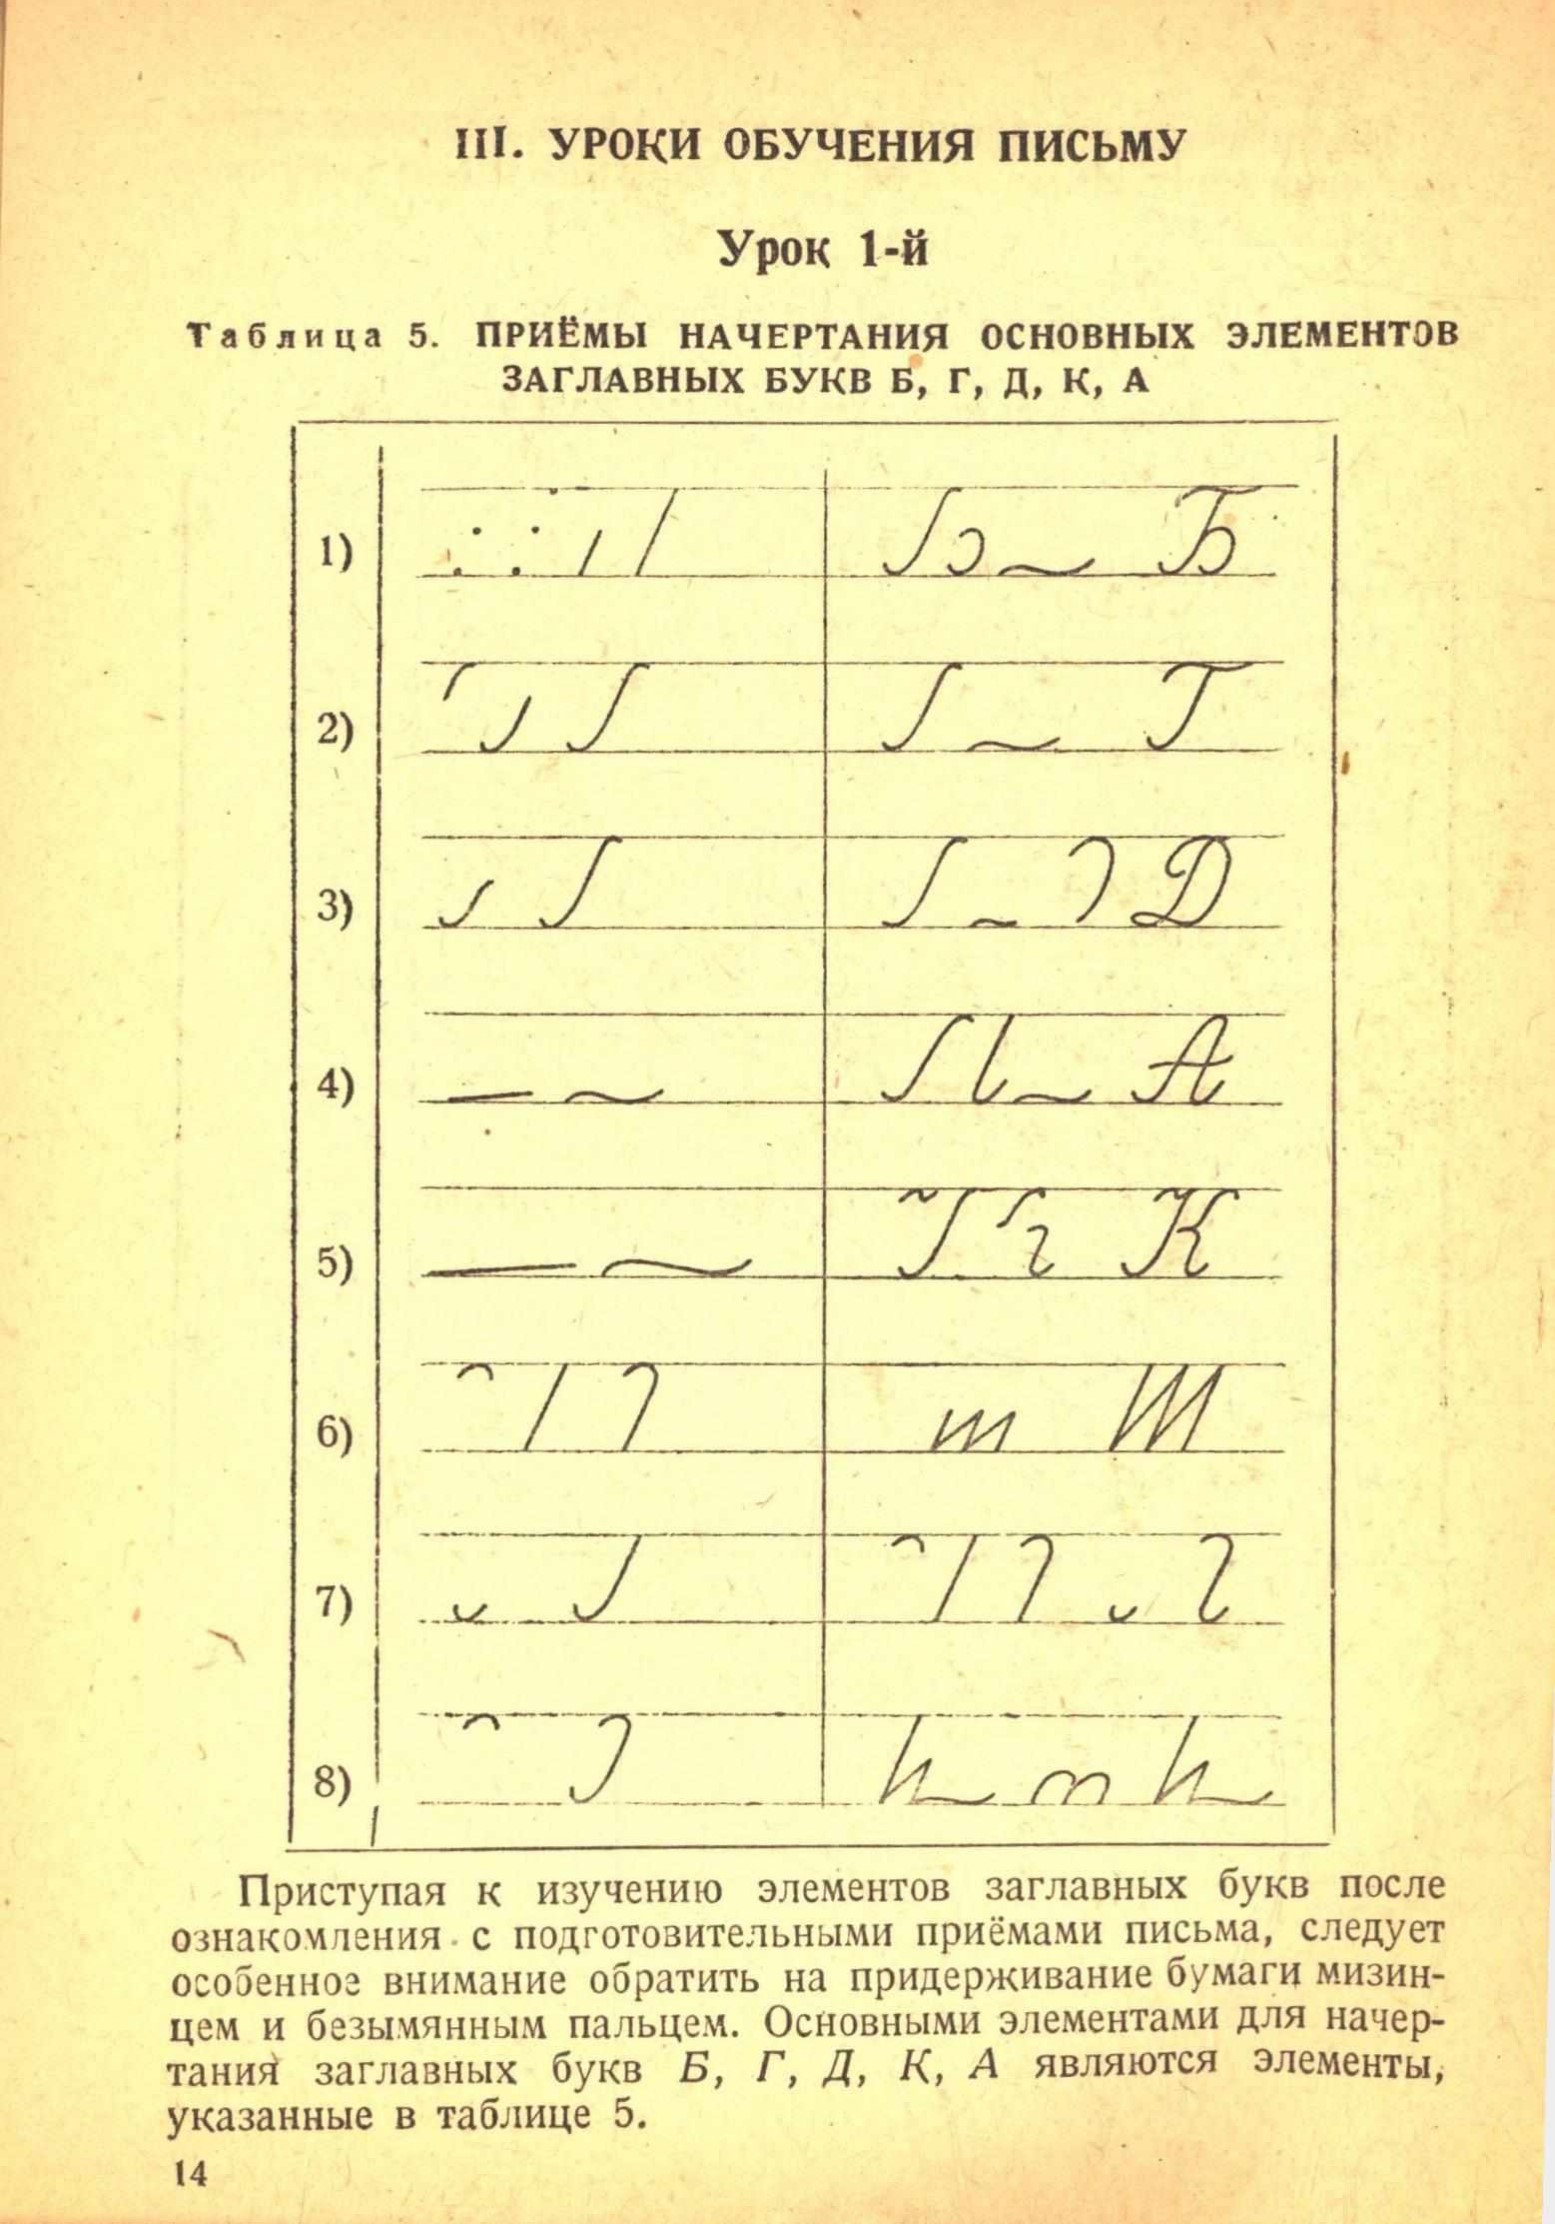 III. УРОКИ ОБУЧЕНИЯ ПИСЬМУ
Урок 1-й
Таблица 5. ПРИЁМЫ НАЧЕРТАНИЯ ОСНОВНЫХ ЭЛЕМЕНТОВ
ЗАГЛАВНЫХ БУКВ Б, Г, Д, К, А
1) Б
2) Г
3) Д
4) А
5) К
6)
7)
8)
Приступая к изучению элементов заглавных букв после
ознакомления с подготовительными приёмами письма, следует
особенное внимание обратить на придерживание бумаги мизин-
цем и безымянным пальцем. Основными элементами для начер-
тания заглавных букв Б, Г, Д, К, А являются элементы,
указанные в таблице 5.
14